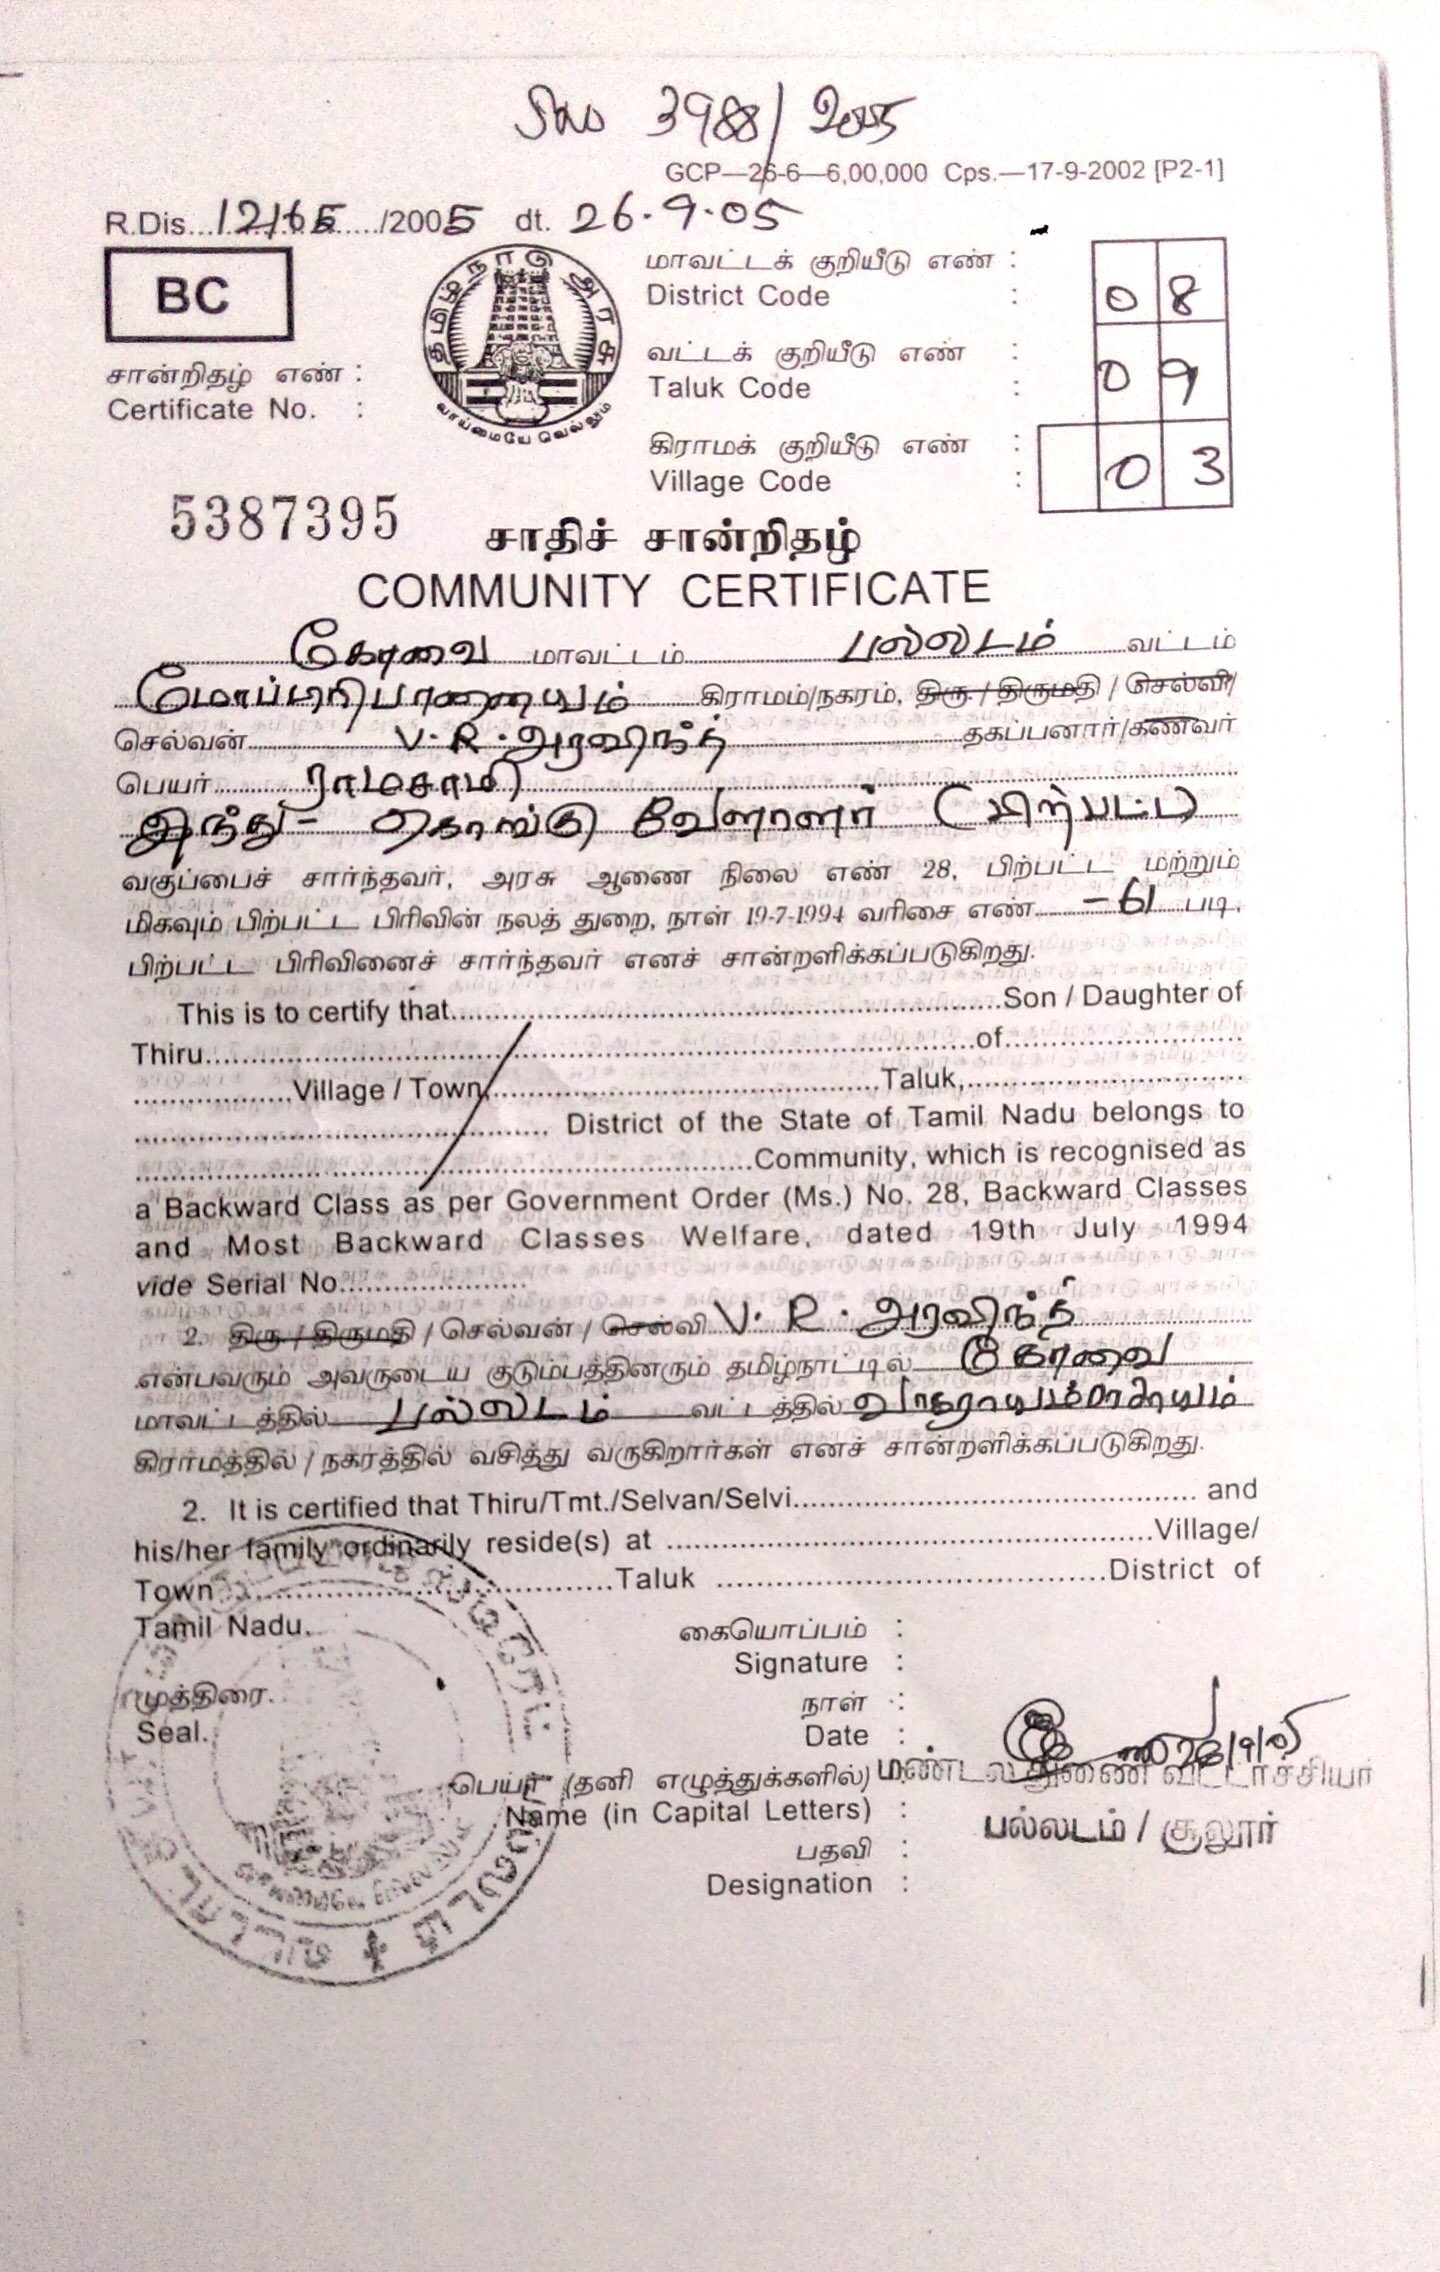 3988/2005
GCP—26-6—6,00,000 Cps.—17-9-2002 [P2-1]
R.Dis...12165...../2005 dt. 26.9.05
BC
தமிழ்நாடு அரசு
வாய்மையே வெல்லும்
மாவட்டக் குறியீடு எண் :
District Code : 08
வட்டக் குறியீடு எண் :
Taluk Code : 09
சான்றிதழ் எண் :
Certificate No. :
கிராமக் குறியீடு எண் :
Village Code : 03
5387395
சாதிச் சான்றிதழ்
COMMUNITY CERTIFICATE
கோவை மாவட்டம் பல்லடம் வட்டம்
கிராமம்/நகரம், திரு / திருமதி / செல்வி/
செல்வன் V.R.அரவிந்த் தகப்பனார்/கணவர்
பெயர் ராமசாமி
இந்து - கொங்கு வேளாளர் (பிற்பட்ட)
வகுப்பைச் சார்ந்தவர், அரசு ஆணை நிலை எண் 28, பிற்பட்ட மற்றும்
மிகவும் பிற்பட்ட பிரிவின் நலத் துறை, நாள் 19-7-1994 வரிசை எண் - 61 படி,
பிற்பட்ட பிரிவினைச் சார்ந்தவர் எனச் சான்றளிக்கப்படுகிறது.
This is to certify that..........Son / Daughter of
Thiru..........of..........
..........Village / Town,..........Taluk,..........
.......... District of the State of Tamil Nadu belongs to
..........Community, which is recognised as
a Backward Class as per Government Order (Ms.) No. 28, Backward Classes
and Most Backward Classes Welfare, dated 19th July 1994
vide Serial No..........
2. திரு / திருமதி / செல்வன் / செல்வி V. R. அரவிந்த்
என்பவரும் அவருடைய குடும்பத்தினரும் தமிழ்நாட்டில் கோவை
மாவட்டத்தில் பல்லடம் வட்டத்தில்
கிராமத்தில் / நகரத்தில் வசித்து வருகிறார்கள் எனச் சான்றளிக்கப்படுகிறது.
2. It is certified that Thiru/Tmt./Selvan/Selvi.......... and
his/her family ordinarily reside(s) at ..........Village/
Town ..........Taluk ..........District of
Tamil Nadu.
கையொப்பம் :
Signature :
முத்திரை.
Seal.
நாள் :
Date : 26/9/05
பெயர் (தனி எழுத்துக்களில்) மண்டல துணை வட்டாட்சியர்
Name (in Capital Letters) : பல்லடம் / சூலூர்
பதவி :
Designation :